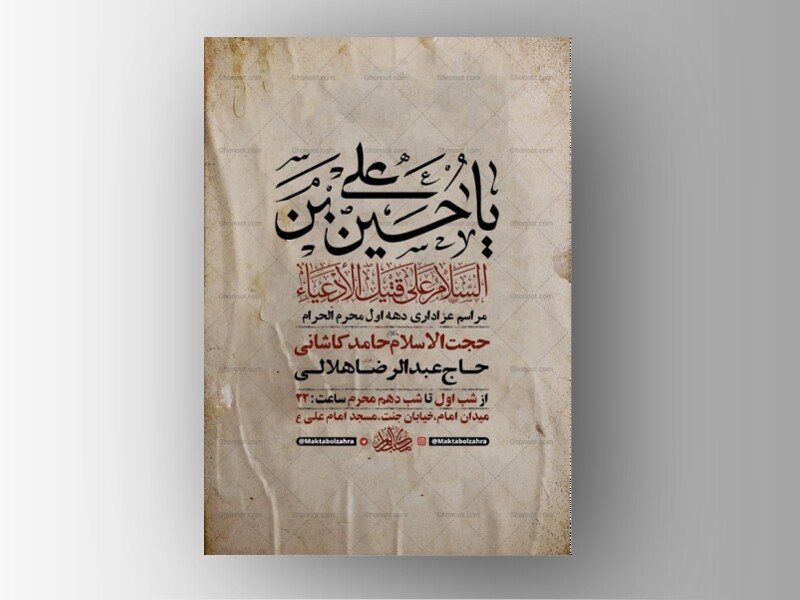 یا حسین بن علی
السلام علی قتیل الأدعیاء
مراسم عزاداری دهه اول محرم الحرام
حجت الاسلام حامد کاشانی
حاج عبدالرضا هلالی
از شب اول تا شب دهم محرم ساعت: ۲۲
میدان امام، خیابان جنت، مسجد امام علی ع
@Maktabolzahra @Maktabolzahra
Ghonoot.com